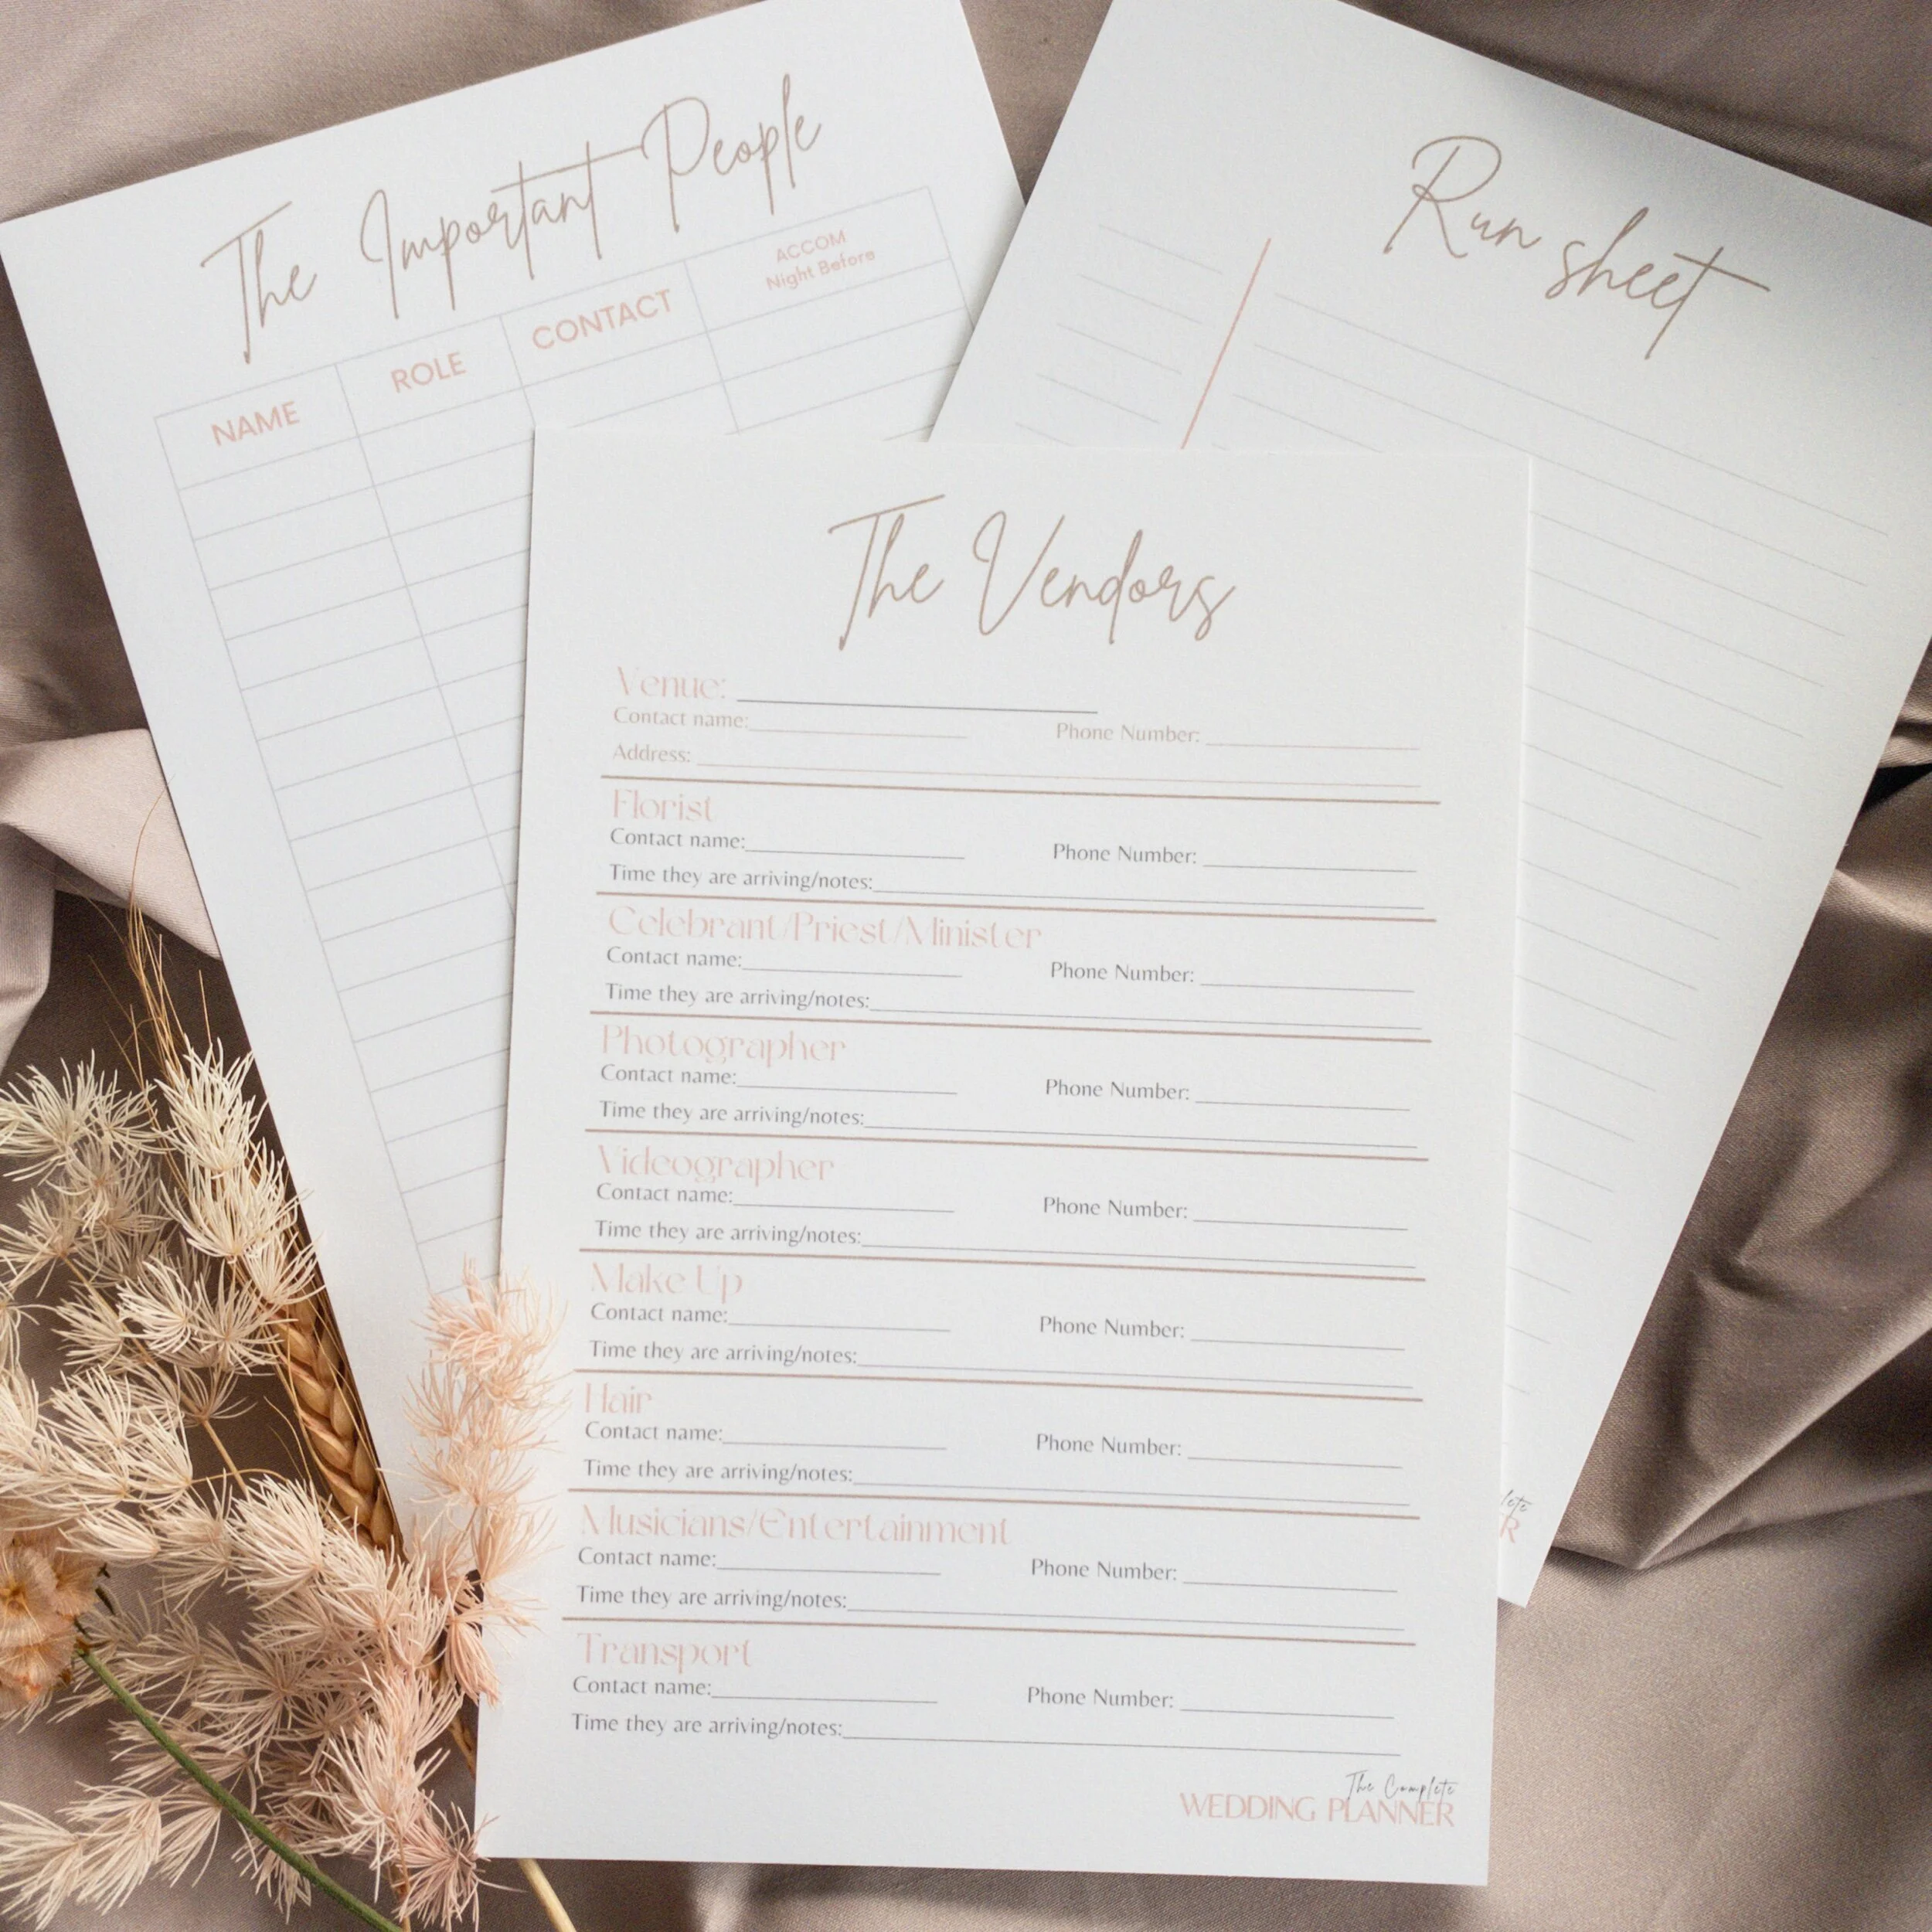 The Important People
NAME ROLE CONTACT ACCOM
Night Before
Run sheet
The Vendors
Venue:
Contact name: Phone Number:
Address:
Florist
Contact name: Phone Number:
Time they are arriving/notes:
Celebrant/Priest/Minister
Contact name: Phone Number:
Time they are arriving/notes:
Photographer
Contact name: Phone Number:
Time they are arriving/notes:
Videographer
Contact name: Phone Number:
Time they are arriving/notes:
Make Up
Contact name: Phone Number:
Time they are arriving/notes:
Hair
Contact name: Phone Number:
Time they are arriving/notes:
Musicians/Entertainment
Contact name: Phone Number:
Time they are arriving/notes:
Transport
Contact name: Phone Number:
Time they are arriving/notes:
The Complete
WEDDING PLANNER